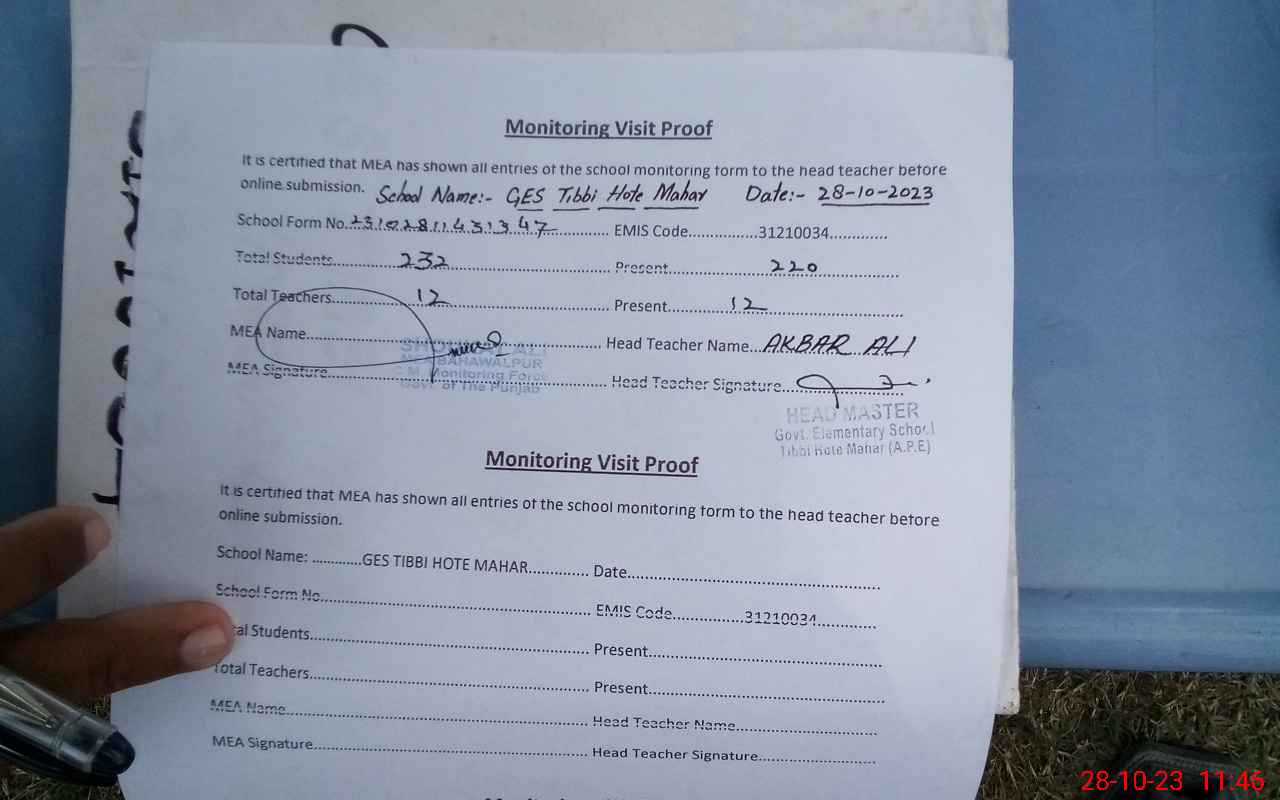 Monitoring Visit Proof
It is certified that MEA has shown all entries of the school monitoring form to the head teacher before
online submission. School Name:- GES Tibbi Hote Mahar Date:- 28-10-2023
School Form No. 23102811431347 EMIS Code...............31210034.............
Total Students 232 Present 220
Total Teachers 12 Present 12
MEA Name Head Teacher Name AKBAR ALI
ALI
MEA BAHAWALPUR
C.M. Monitoring Force
Govt. of The Punjab
MEA Signature Head Teacher Signature
HEAD MASTER
Govt. Elementary School
Tibbi Hote Mahar (A.P.E)
Monitoring Visit Proof
It is certified that MEA has shown all entries of the school monitoring form to the head teacher before
online submission.
School Name: ............GES TIBBI HOTE MAHAR............... Date
School Form No. EMIS Code.................31210034..............
Students Present
Total Teachers Present
MEA Name Head Teacher Name
MEA Signature Head Teacher Signature
28-10-23 11:46